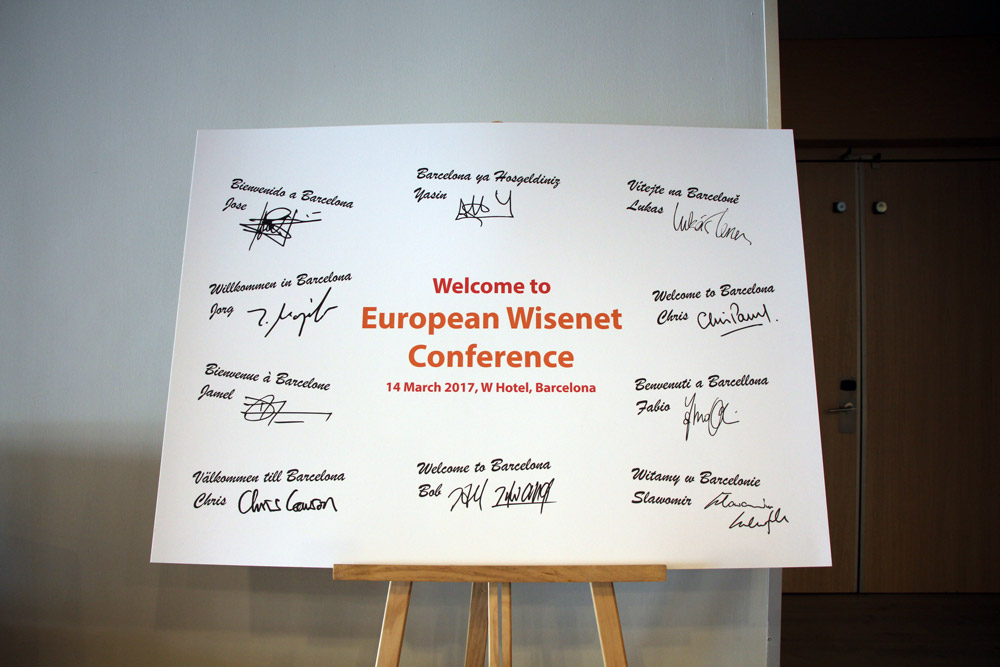 Bienvenido a Barcelona
Jose
Barcelona ya Hosgeldiniz
Yasin
Vítejte na Barceloně
Lukas
Willkommen in Barcelona
Jorg
Welcome to
European Wisenet
Conference
14 March 2017, W Hotel, Barcelona
Welcome to Barcelona
Chris
Bienvenue à Barcelone
Jamel
Benvenuti a Barcellona
Fabio
Välkommen till Barcelona
Chris
Chris Lawson
Welcome to Barcelona
Bob
Witamy w Barcelonie
Slawomir